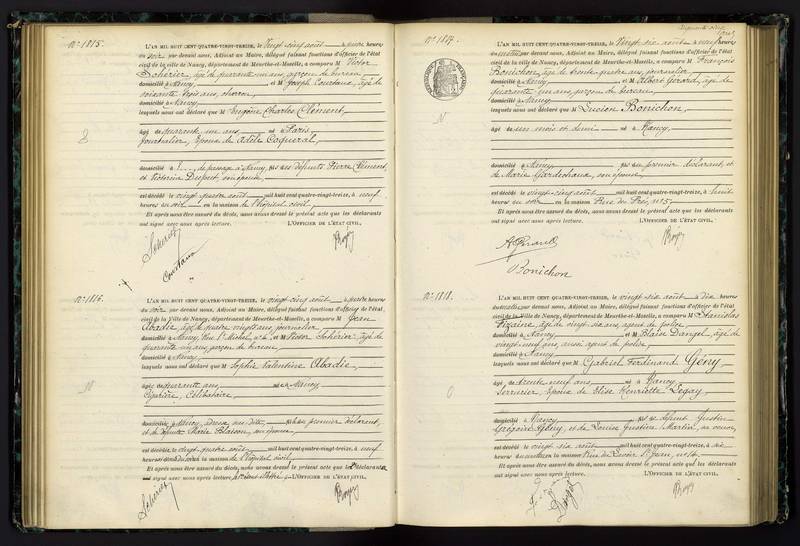 N° 1815.
L'AN MIL HUIT CENT QUATRE-VINGT-TREIZE, le Vingt cinq août à quatre heures
du soir par devant nous, Adjoint au Maire, délégué faisant fonctions d'officier de l'état
civil de la ville de Nancy, département de Meurthe-et-Moselle, a comparu M Victor
Schérier, âgé de quarante un ans, garçon de bureau
domicilié à Nancy, et M Joseph Courtaux, âgé de
soixante trois ans,
domicilié à Nancy,
lesquels nous ont déclaré que M Eugène Charles Clément,
8
âgé de quarante un ans né à Paris
Journalier, époux de Adèle Coqueral,
domicilié à de passage à Nancy, fils des défunts Pierre Clément,
et Victorine son épouse,
est décédé le vingt quatre août mil huit cent quatre-vingt-treize, à neuf
heures du soir en la maison de l'hôpital civil,
Et après nous être assuré du décès, nous avons dressé le présent acte que les déclarants
ont signé avec nous après lecture. L'OFFICIER DE L'ÉTAT CIVIL,
Schérier
Courtaux
N° 1816.
L'AN MIL HUIT CENT QUATRE-VINGT-TREIZE, le vingt cinq août à quatre heures
du soir par devant nous, Adjoint au Maire, délégué faisant fonctions d'officier de l'état
civil de la ville de Nancy, département de Meurthe-et-Moselle, a comparu M Jean
Abadie, âgé de quatre vingts ans, journalier
domicilié à Nancy, Rue St Michel, et M Victor Schérier, âgé de
quarante un ans, garçon de bureau,
domicilié à Nancy,
lesquels nous ont déclaré que M Sophie Valentine Abadie,
N
âgée de quarante ans, née à Nancy
Célibataire,
domiciliée à Nancy, fille du premier déclarant,
et de défunte Marie Blaison, son épouse,
est décédée le vingt quatre août mil huit cent quatre-vingt-treize, à neuf
heures du en la maison de l'hôpital civil,
Et après nous être assuré du décès, nous avons dressé le présent acte que les déclarants
ont signé avec nous après lecture, L'OFFICIER DE L'ÉTAT CIVIL,
Schérier
N° 1817.
L'AN MIL HUIT CENT QUATRE-VINGT-TREIZE, le Vingt six août à neuf heures
du matin par devant nous, Adjoint au Maire, délégué faisant fonctions d'officier de l'état
civil de la ville de Nancy, département de Meurthe-et-Moselle, a comparu M François
Bonichon, âgé de trente quatre ans, journalier
domicilié à Nancy et M Albert Gérard, âgé de
quarante un ans, garçon de bureau,
domicilié à Nancy
lesquels nous ont déclaré que M Lucien Bonichon,
N
âgé de un mois et demi né à Nancy,
domicilié à Nancy fils du premier déclarant, et
de Marie son épouse,
est décédé le vingt-cinq août mil huit cent quatre-vingt-treize, à huit
heures du soir en la maison Rue des n° 5.
Et après nous être assuré du décès, nous avons dressé le présent acte que les déclarants
ont signé avec nous après lecture. L'OFFICIER DE L'ÉTAT CIVIL,
A Gérard
Bonichon
N° 1818.
L'AN MIL HUIT CENT QUATRE-VINGT-TREIZE, le vingt six août à dix heures
du matin par devant nous, Adjoint au Maire, délégué faisant fonctions d'officier de l'état
civil de la ville de Nancy, département de Meurthe-et-Moselle, a comparu M Stanislas
âgé de vingt six ans, agent de police
domicilié à Nancy et M Blaise Dangel, âgé de
vingt neuf ans, aussi agent de police,
domicilié à Nancy
lesquels nous ont déclaré que M Gabriel Ferdinand Gény,
0
âgé de trente neuf ans né à Nancy
Serrurier, époux de Elise Henriette Legay
domicilié à Nancy fils de défunt Justin
Grégoire Gény, et de Louise Justine Martin, sa veuve,
est décédé le vingt six août mil huit cent quatre-vingt-treize, à six
heures du matin en la maison Rue du St Jean,
Et après nous être assuré du décès, nous avons dressé le présent acte que les déclarants
ont signé avec nous après lecture. L'OFFICIER DE L'ÉTAT CIVIL,
Dangel